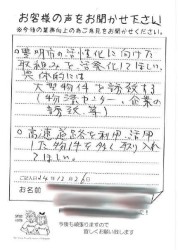 お客様の声をお聞かせ下さい!
※今後の業務向上の為ご意見をお聞かせください。
○豊明市の活性化に向けた
取組みを活発化してほしい。
具体的には
大型物件を誘致する
(物流センター、企業の
誘致、等)
○高速道路を利用、活用
した物件を多く取り入れ
てほしい。
ご記入日 24年12月26日
お名前
今後も頑張りますので
宜しくお願い致します